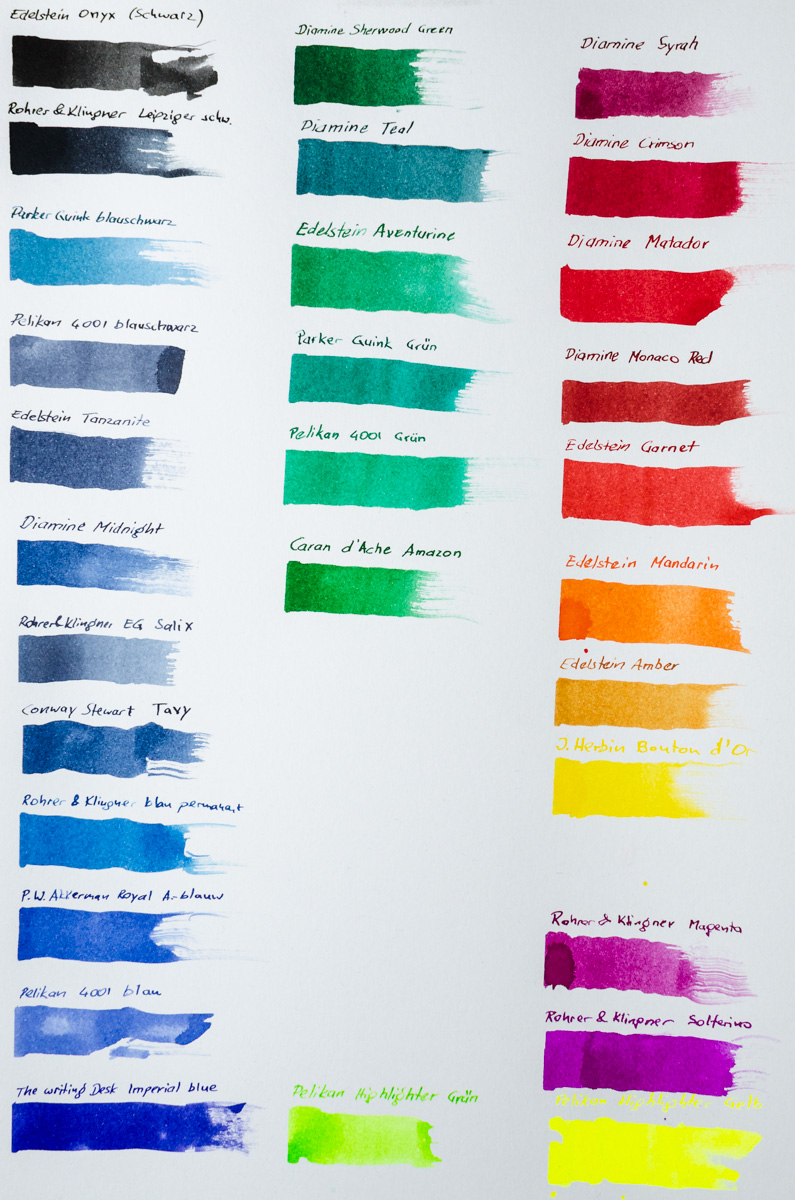 Edelstein Onyx (Schwarz)
Rohrer & Klingner Leipziger schw.
Parker Quink blauschwarz
Pelikan 4001 blauschwarz
Edelstein Tanzanite
Diamine Midnight
Rohrer & Klingner EG Salix
Conway Stewart Tavy
Rohrer & Klingner blau permanent
P.W. Akkerman Royal A.-blauw
Pelikan 4001 blau
The writing Desk Imperial blue
Diamine Sherwood Green
Diamine Teal
Edelstein Aventurine
Parker Quink Grün
Pelikan 4001 Grün
Caran d'Ache Amazon
Pelikan Highlighter Grün
Diamine Syrah
Diamine Crimson
Diamine Matador
Diamine Monaco Red
Edelstein Garnet
Edelstein Mandarin
Edelstein Amber
J. Herbin Bouton d'Or
Rohrer & Klingner Magenta
Rohrer & Klingner Solferino
Pelikan Highlighter Gelb